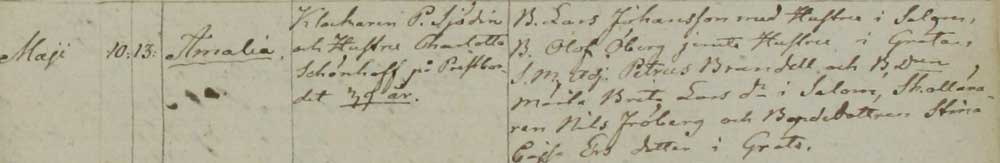 Maji 10. 13. Amalia.
Klockaren P. Sjödin
och Hustru Charlotta
Schönhoff på Prestbor-
det 39 år.
B. Lars Johansson med Hustru i Salom,
B. Olof Öberg jemte Hustru i Gräta,
Petrus Brundell och
Märta Brita Lars dr i Salom, Skollära-
ren Nils Fröberg och Bondedottren Stina
Cajsa Ers dotter i Gräta.